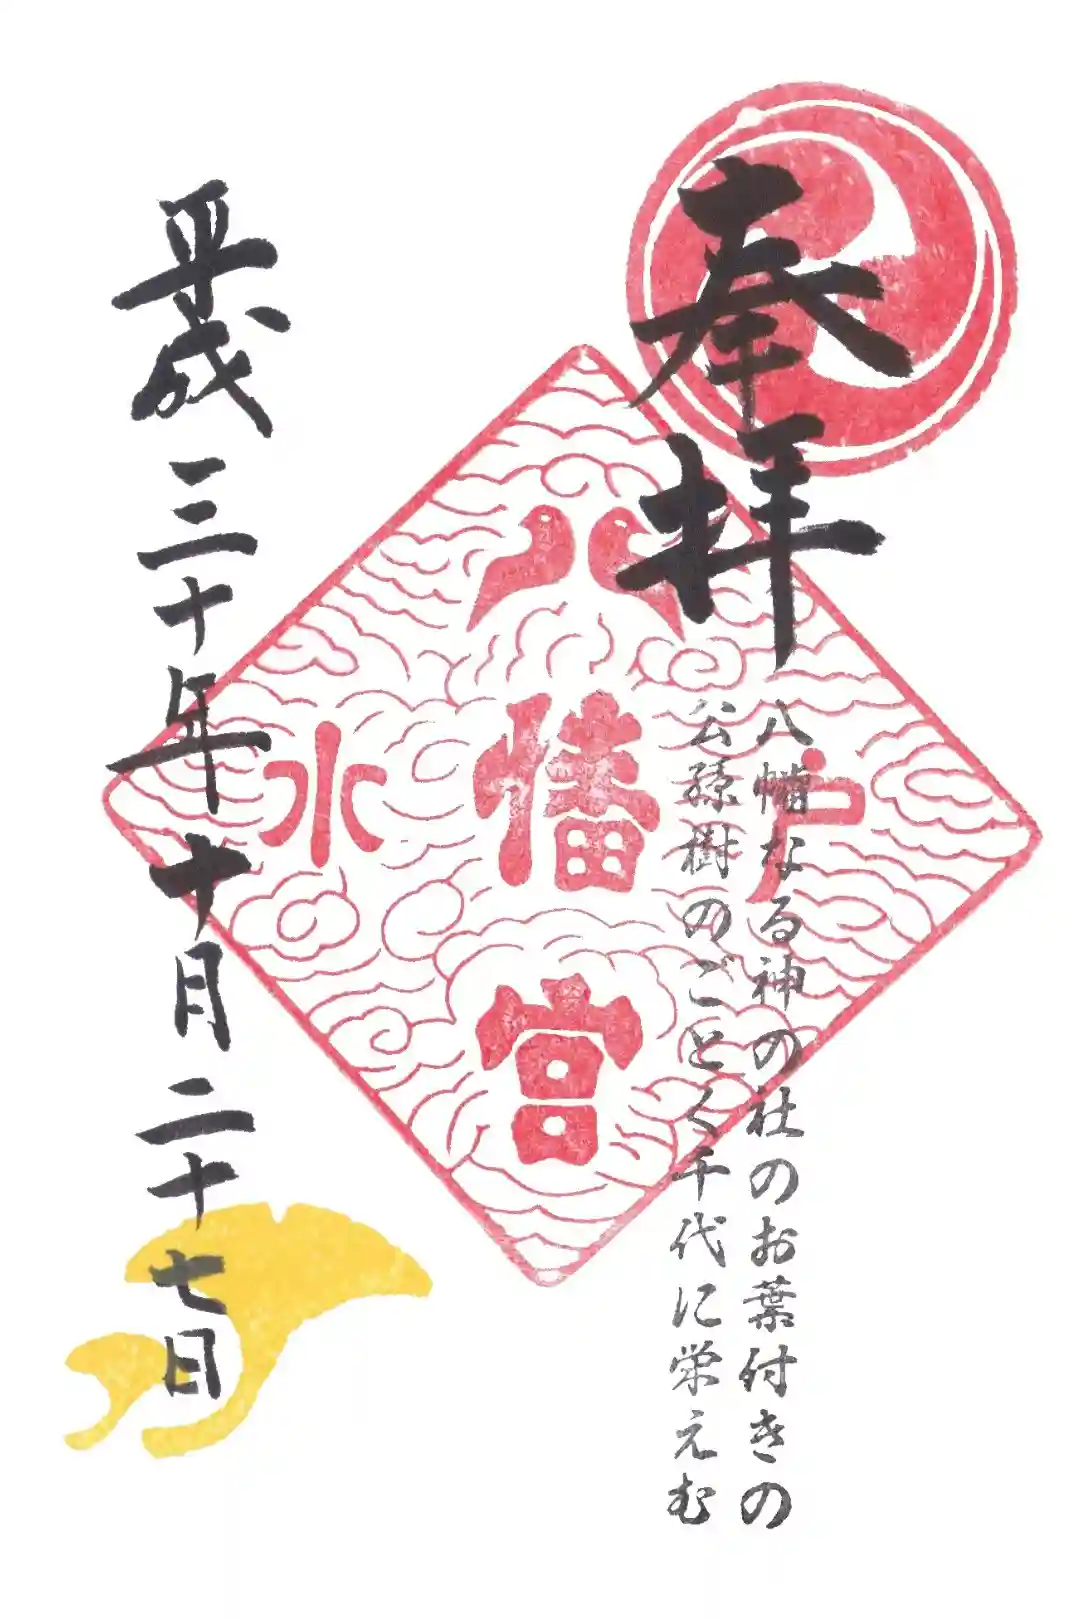 奉拝
八幡なる神の社のお葉付きの
公孫樹のごとく千代に栄えむ
水戸
八幡宮
平成三十年十月二十七日